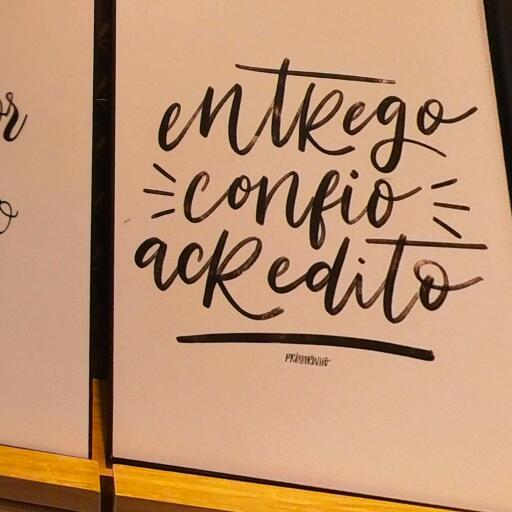 entrego
confio
acredito